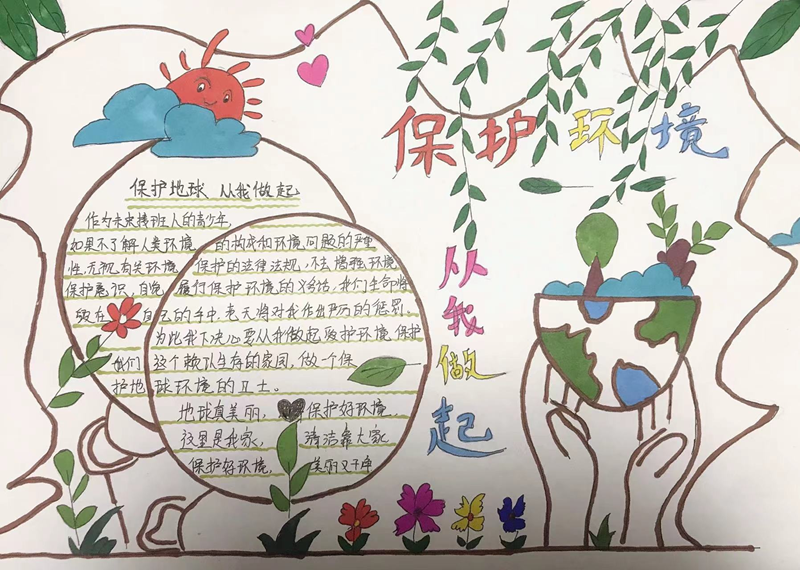 保护环境
从我做起
保护地球 从我做起
作为未来接班人的青少年,
如果不了解人类环境的构成和环境问题的严重
性,无视有关环境保护的法律法规,不去增强环境
保护意识,自觉履行保护环境的义务的话,我们生命将
毁在自己的手中,老天将对我作出严厉的惩罚。
为此我下决心要从我做起爱护环境,保护
我们这个赖以生存的家园,做一个保
护地球环境的卫士。
地球真美丽, 保护好环境
这里是我家, 清洁靠大家
保护好环境, 美丽又干净